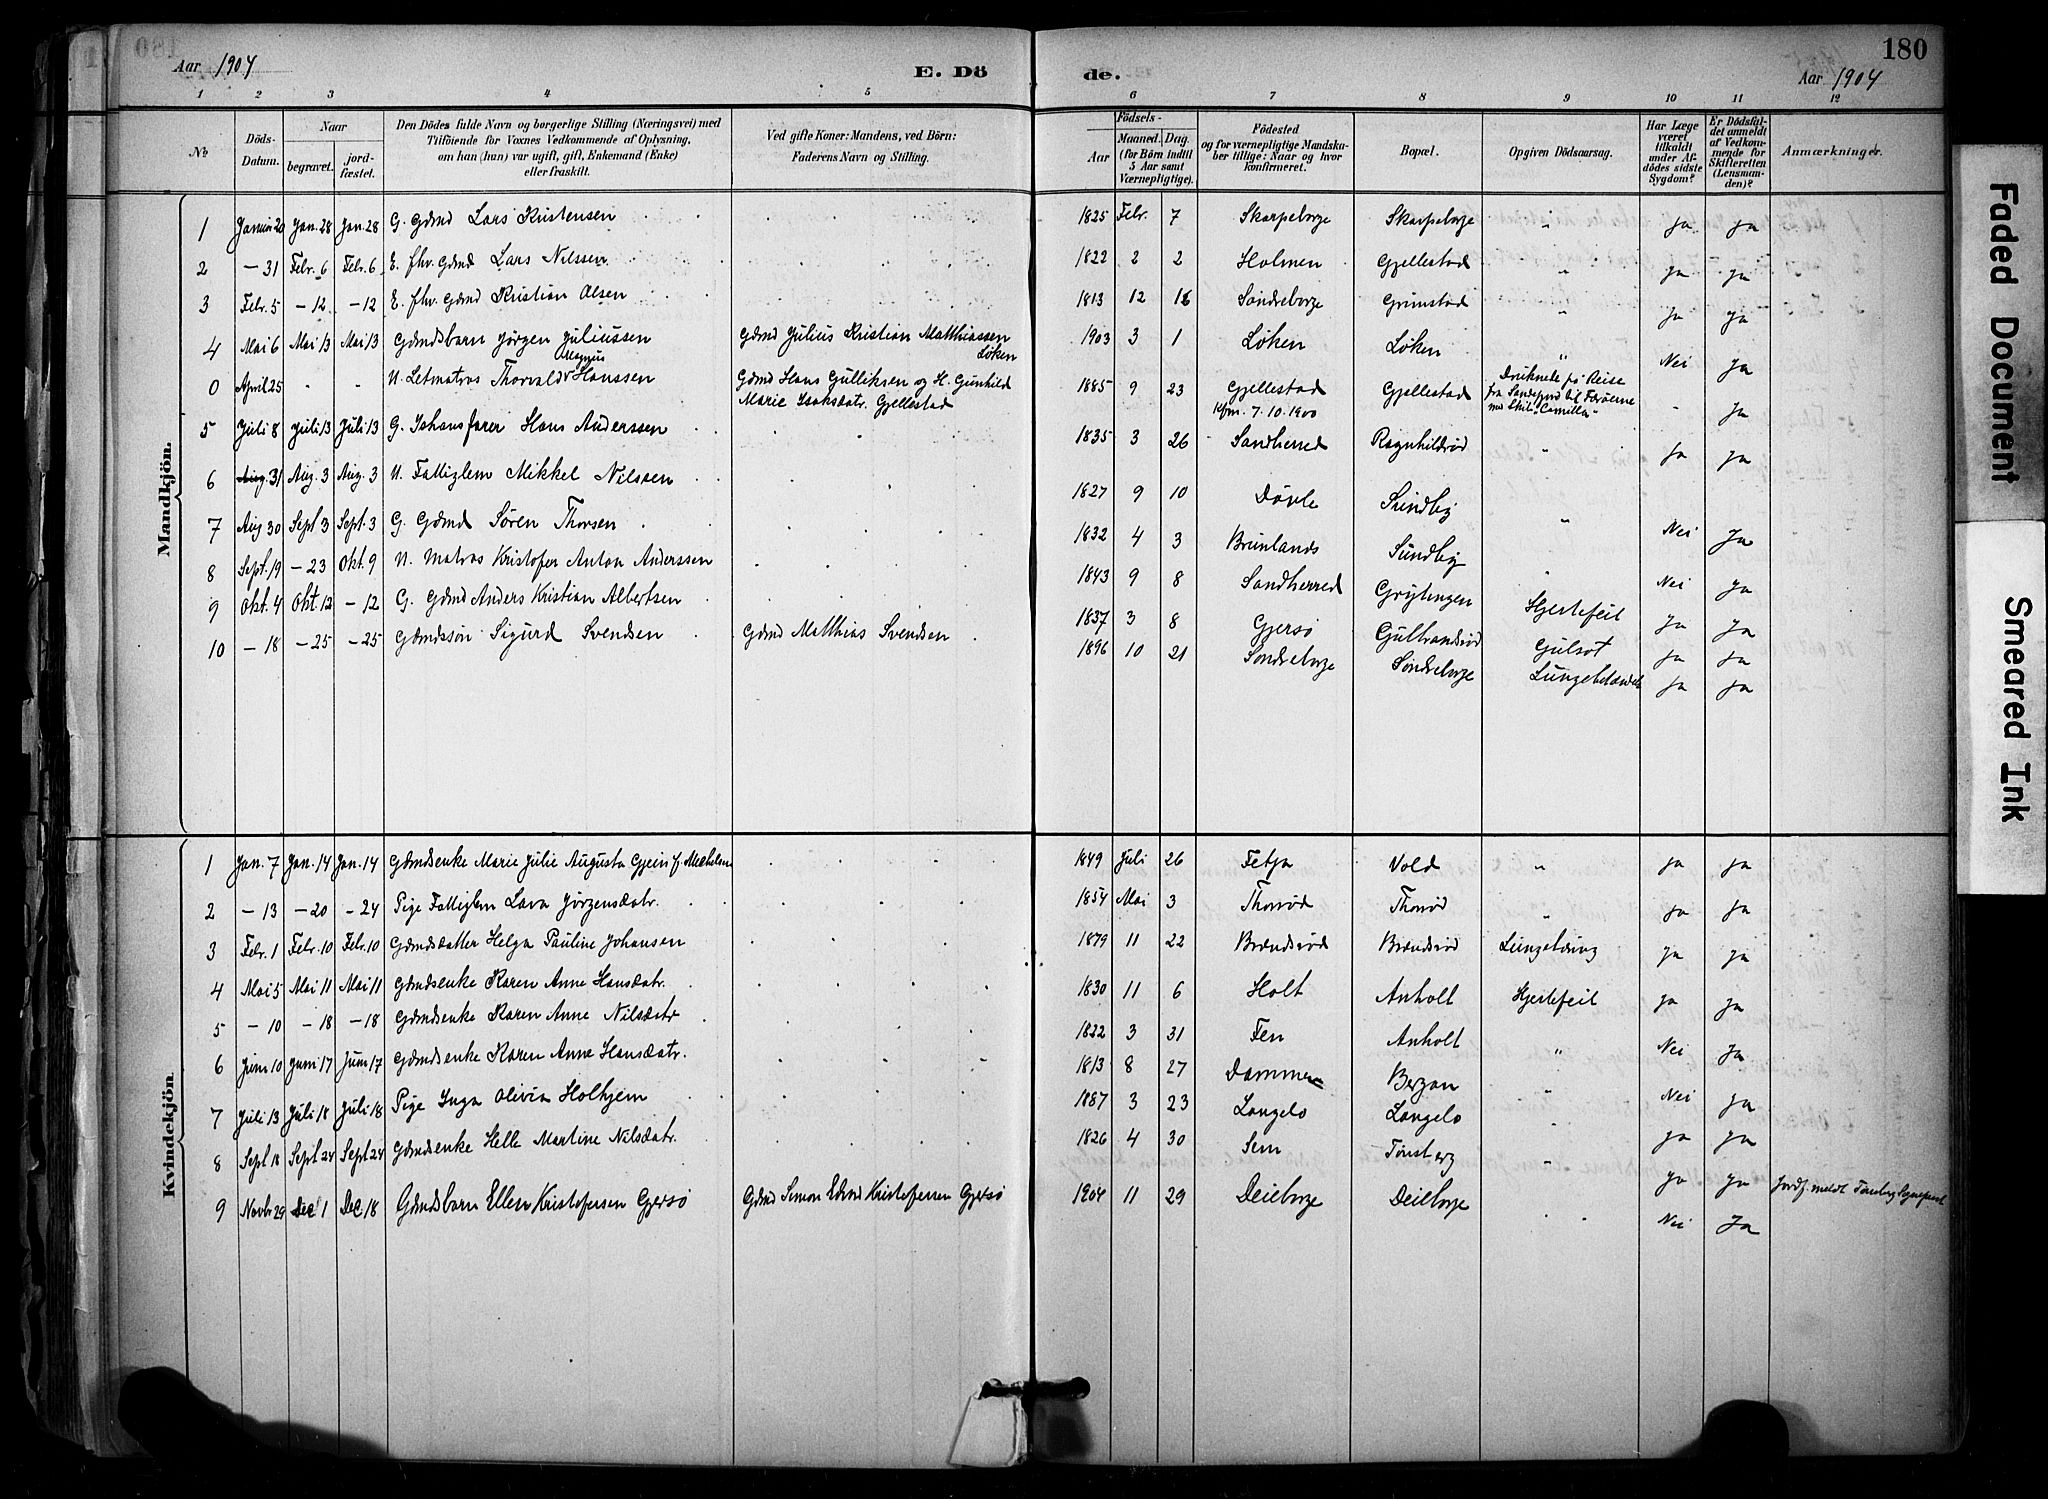 180
Aar 1904
E. Dö
de.
Aar 1904
1 2 3 4 5 6 7 8 9 10 11 12
No
Döds-Datum.
Naar
begravet.
jordfæstet.
Den Dödes fulde Navn og borgerlige Stilling (Næringsvei) med
Tilföiende for Voxnes Vedkommende af Oplysning,
om han (hun) var ugift, gift, Enkemand (Enke)
eller fraskilt.
Ved gifte Koner: Mandens, ved Börn:
Faderens Navn og Stilling.
Födsels-
Aar
Maaned. Dag.
(for Börn indtil
5 Aar samt
Værnepligtige).
Födested
og for værnepligtige Mandska-
ber tillige: Naar og hvor
konfirmeret.
Bopæl.
Opgiven Dödsaarsag.
Har Læge
været
tilkaldt
under Af-
dödes sidste
Sygdom?
Er Dödsfal-
det anmeldt
af Vedkom-
mende for
Skifteretten
(Lensman-
den)?
Anmærkninger.
Mandkjön.
1 Januar 20 Jan. 28 Jan. 28 G. Gdmd Lars Kristensen 1825 Febr. 7 Skarpeborge Skarpeborge " Ja Ja
2 – 31 Febr. 6 Febr. 6 E. fhv. Gdmd Lars Nilssen 1822 2 2 Holmen Gjellestad " Ja Ja
3 Febr. 5 – 12 – 12 E. fhv. Gdmd Kristian Olsen 1813 12 16 Søndreborge Grimstad " Ja Ja
4 Mai 6 Mai 13 Mai 13 Gdmdsbarn Jørgen Juliussen Gdmd Julius Kristian Matthiassen Løken 1903 3 1 Løken Løken " Nei Ja
0 April 25 " " U. Letmatros Thorvald Magnus Hanssen Gdmd Hans Gulliksen og H. Gunhild
Marie Isaksdatr. Gjellestad 1885 9 23 Gjellestad
Kfm. 7.10.1900 Gjellestad Druknede på Reise
fra Sandefjord til Færøerne
med Skib "Camilla" - Ja
5 Juli 8 Juli 13 Juli 13 G. Ishavsfarer Hans Anderssen 1835 3 26 Sandherred Ragnhildrød " Ja Ja
6 Aug. 31 Aug. 3 Aug. 3 U. Fattiglem Mikkel Nilssen 1827 9 10 Døvle Sundby " Nei Ja
7 Aug 30 Sept 3 Sept. 3 G. Gdmd Søren Thorsen 1832 4 3 Brunlands Sundby " Nei Ja
8 Sept. 19 – 23 Okt. 9 U. Matros Kristofer Anton Anderssen 1843 9 8 Sandherred Grytingen Hjertefeil Ja Ja
9 Okt. 4 Okt. 12 – 12 G. Gdmd Anders Kristian Albertsen 1837 3 8 Gjersø Gulbrandsrød Gulsot Ja Ja
10 – 18 – 25 – 25 Gdmdssøn Sigurd Svendsen Gdmd Matthias Svendsen 1896 10 21 Søndreborge Søndreborge Ja Ja
Kvindekjön.
1 Jan. 7 Jan. 14 Jan. 14 Gdmdsenke Marie Julie Augusta Gjein 1849 Juli 26 Fetja Vold " Ja Ja
2 – 13 – 20 – 24 Pige Fattiglem Lava Jørgensdatr. 1854 Mai 3 Thorrød Thorrød " Ja Ja
3 Febr. 1 Febr. 10 Febr. 10 Gdmdsdatter Helga Pauline Johansen 1879 11 22 Brændsrød Brændsrød Lungetæring Ja Ja
4 Mai 5 Mai 11 Mai 11 Gdmdsenke Karen Anne Hansdatr. 1830 11 6 Holt Anholt Hjertefeil Ja Ja
5 – 10 – 18 – 18 Gdmdsenke Karen Anne Nilsdatr 1822 3 31 Fen Anholt " Nei Ja
6 Juni 10 Juni 17 Juni 17 Gdmdsenke Karen Anne Hansdatr. 1813 8 27 Dammen Bergan " Nei Ja
7 Juli 13 Juli 18 Juli 18 Pige Inga Olivia Holhjem 1887 3 23 Langelo Langelo " Ja Ja
8 Sept 18 Sept 24 Sept 24 Gdmdsenke Helle Martine Nilsdatr. 1826 4 30 Sem Tønsberg " Ja Ja Jordf. meldt Tønsberg
9 Novbr 29 Dec 1 Dec 18 Gdmdsbarn Ellen Kristofersen Gjersø Gdmd Simon Edvard Kristofersen Gjersø 1904 11 29 Deieborge Deieborge " Nei Ja
Faded Document
Smeared Ink